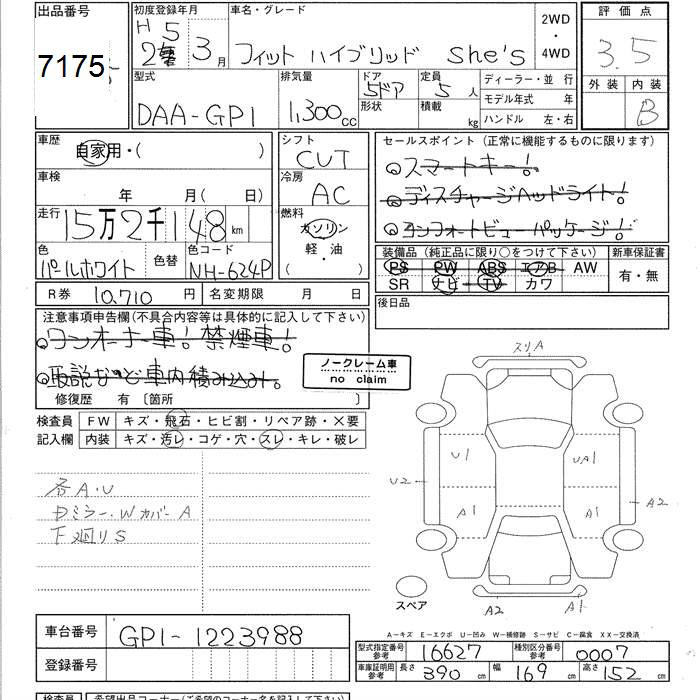 出品番号
7175
初度登録年月
H 25年 3月
車名・グレード
フィット ハイブリッド She's
2WD
・
4WD
評価点
3.5
外装 内装
B
型式
DAA-GP1
排気量
1,300cc
ドア
5ドア
形状
定員
5人
積載
kg
ディーラー・並 行
モデル年式 年
ハンドル 左・右
車歴
自家用・( )
車検
年 月( 日)
走行
15万2千148km
色
パールホワイト
色替
色コード
NH-624P
シフト
CVT
冷房
AC
燃料
ガソリン
軽・油
( )
セールスポイント(正常に機能するものに限ります)
スマートキー!
ディスチャージヘッドライト!
コンフォートビューパッケージ!
装備品(純正品に限り○をつけて下さい)
PS PW ABS エアB AW
SR ナビ TV カワ
新車保証書
有・無
後日品
R券 10,710 円
名変期限 月 日
注意事項申告欄(不具合内容等は具体的に記入して下さい)
ワンオーナー車! 禁煙車!
取説など車内積み込み!
修復歴 有〔箇所 〕
ノークレーム車
no claim
検査員
記入欄
FW キズ・飛石・ヒビ割・リペア跡・×要
内装 キズ・汚レ・コゲ・穴・スレ・キレ・破レ
各A・U
ミラー・WカバーA
下廻りS
スリA
U1
UA1
U2
A1
A1
A2
スペア
A2
A1
A-キズ E-エクボ U-凹み W-補修跡 S-サビ C-腐食 XX-交換済
車台番号
GP1-1223988
登録番号
型式指定番号
参考
16627
種別区分番号
参考
0007
車庫証明用
参考
長さ 390cm 幅 169cm 高さ 152cm
検査員
希望出品コーナー(ご希望のコーナー名を記入下さい)